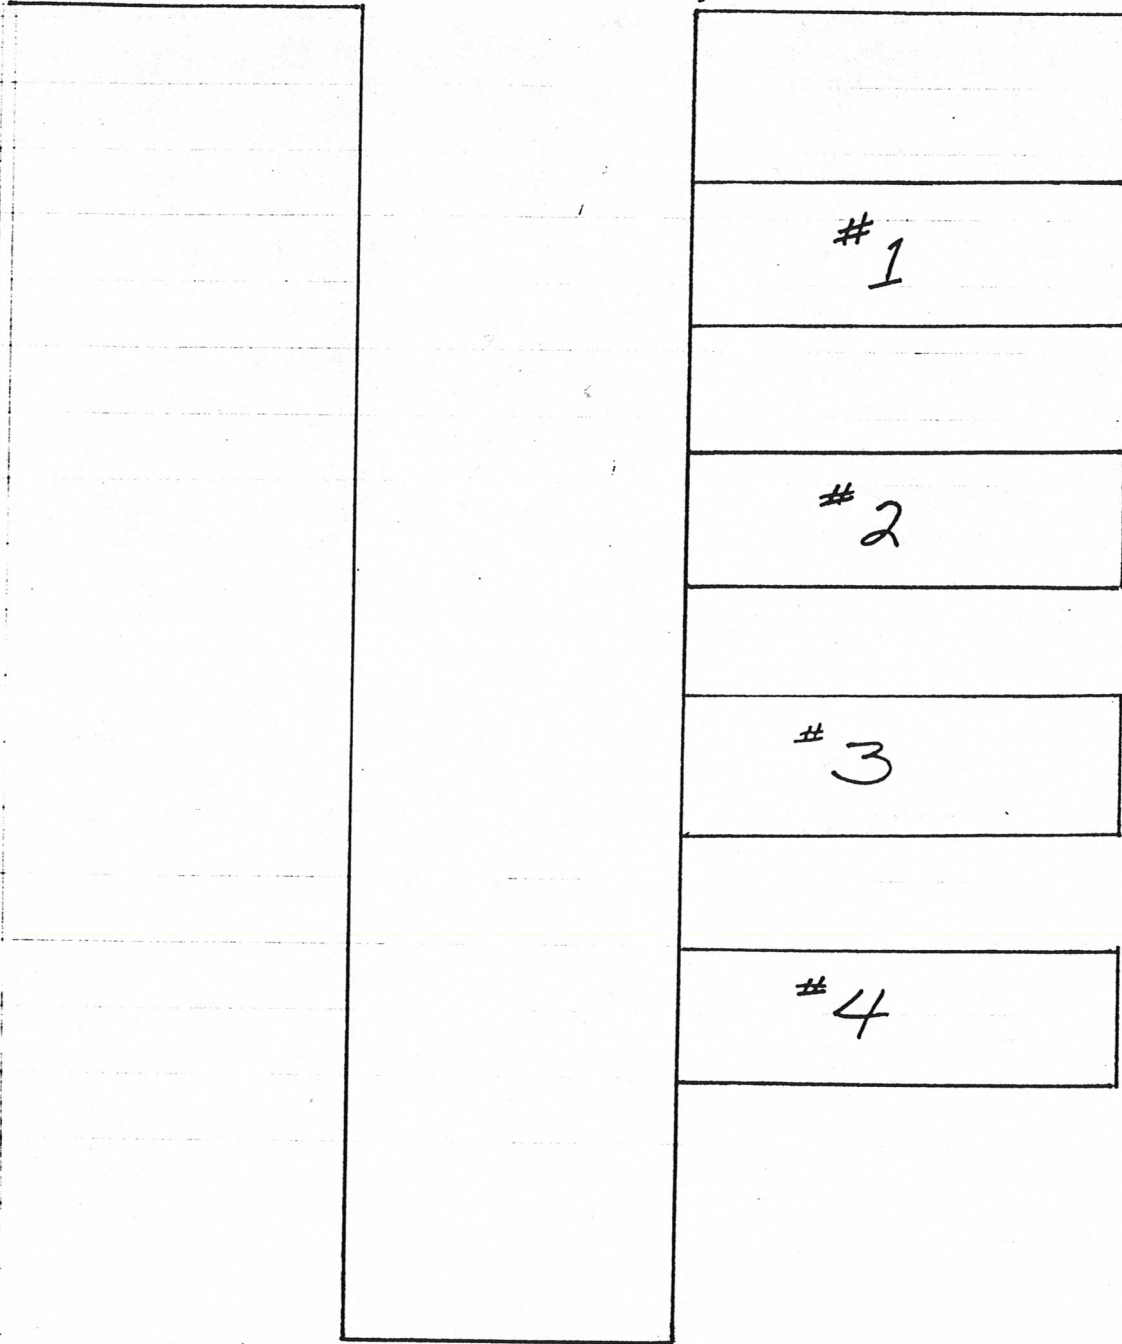 #1
#2
#3
#4